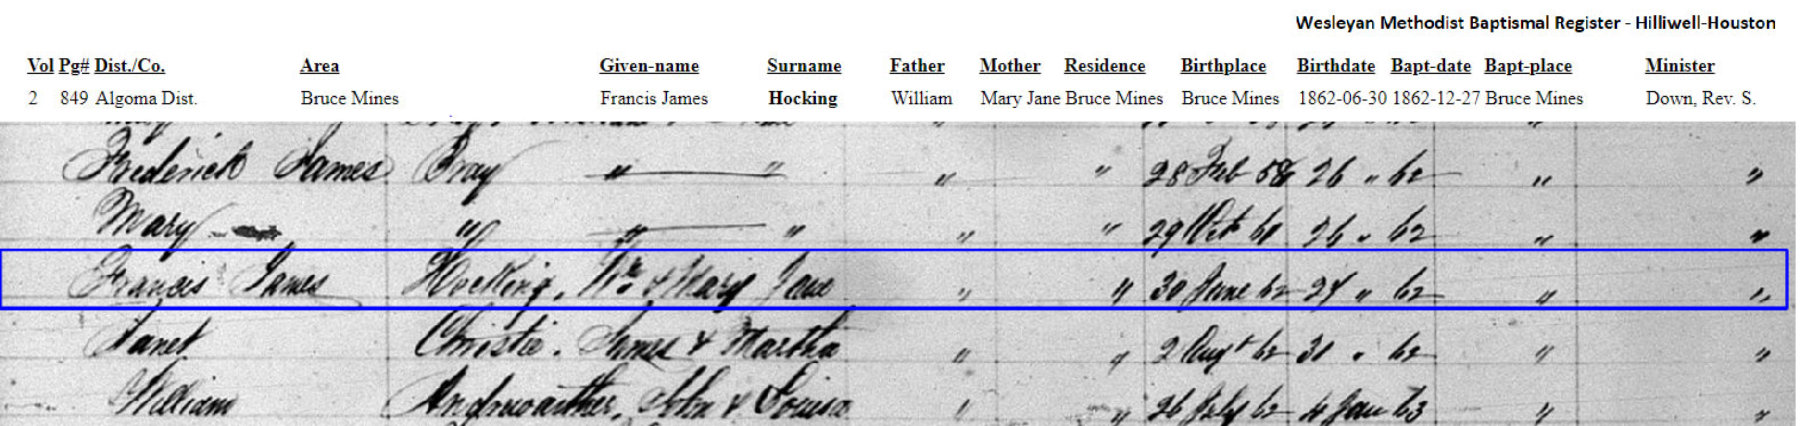 Wesleyan Methodist Baptismal Register - Hilliwell-Houston
Vol Pg# Dist./Co. Area Given-name Surname Father Mother Residence Birthplace Birthdate Bapt-date Bapt-place Minister
2 849 Algoma Dist. Bruce Mines Francis James Hocking William Mary Jane Bruce Mines Bruce Mines 1862-06-30 1862-12-27 Bruce Mines Down, Rev. S.
Frederick James Bray " " " " 28 Feb 58 26 " 62 " "
Mary " " " " " 29 Oct 60 26 " 62 " "
Francis James Hocking, Wm & Mary Jane " " 30 June 62 27 " 62 " "
Janet Christie. James & Martha " " 2 Augt 62 31 " 62 " "
William John & Louisa " " 26 July 62 4 Jan 63 " "